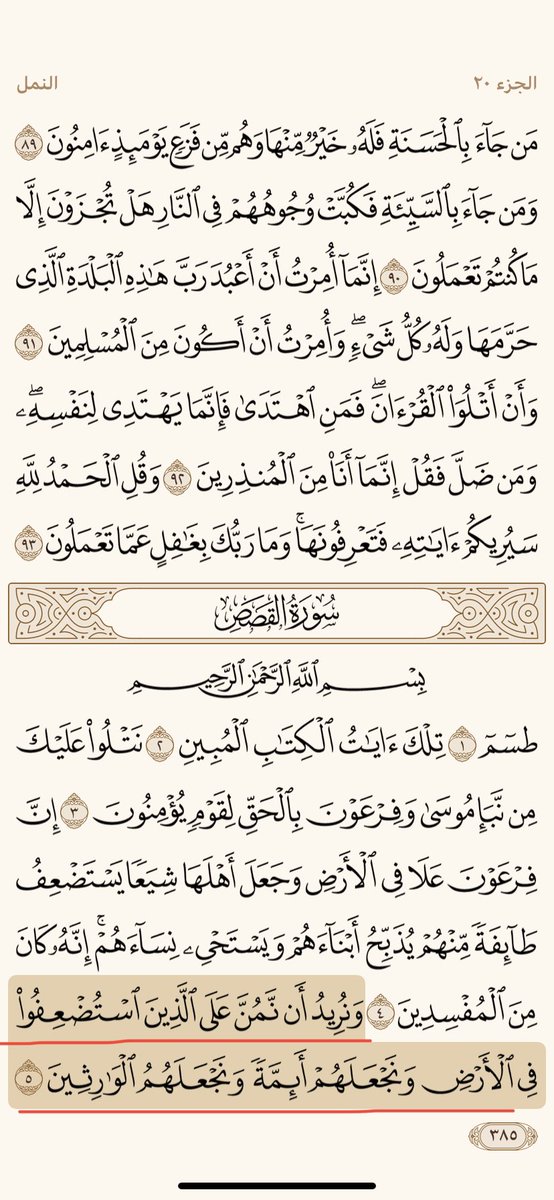 الجزء ٢٠
النمل
مَن جَآءَ بِٱلْحَسَنَةِ فَلَهُۥ خَيْرٌ مِّنْهَا وَهُم مِّن فَزَعٍ يَوْمَئِذٍ ءَامِنُونَ ٨٩
وَمَن جَآءَ بِٱلسَّيِّئَةِ فَكُبَّتْ وُجُوهُهُمْ فِى ٱلنَّارِ هَلْ تُجْزَوْنَ إِلَّا
مَا كُنتُمْ تَعْمَلُونَ ٩٠ إِنَّمَآ أُمِرْتُ أَنْ أَعْبُدَ رَبَّ هَٰذِهِ ٱلْبَلْدَةِ ٱلَّذِى
حَرَّمَهَا وَلَهُۥ كُلُّ شَىْءٍۖ وَأُمِرْتُ أَنْ أَكُونَ مِنَ ٱلْمُسْلِمِينَ ٩١
وَأَنْ أَتْلُوَا۟ ٱلْقُرْءَانَۖ فَمَنِ ٱهْتَدَىٰ فَإِنَّمَا يَهْتَدِى لِنَفْسِهِۦۖ
وَمَن ضَلَّ فَقُلْ إِنَّمَآ أَنَا۠ مِنَ ٱلْمُنذِرِينَ ٩٢ وَقُلِ ٱلْحَمْدُ لِلَّهِ
سَيُرِيكُمْ ءَايَٰتِهِۦ فَتَعْرِفُونَهَاۚ وَمَا رَبُّكَ بِغَٰفِلٍ عَمَّا تَعْمَلُونَ ٩٣
سُورَةُ القَصَصِ
بِسْمِ ٱللَّهِ ٱلرَّحْمَٰنِ ٱلرَّحِيمِ
طسٓمٓ ١ تِلْكَ ءَايَٰتُ ٱلْكِتَٰبِ ٱلْمُبِينِ ٢ نَتْلُوا۟ عَلَيْكَ
مِن نَّبَإِ مُوسَىٰ وَفِرْعَوْنَ بِٱلْحَقِّ لِقَوْمٍ يُؤْمِنُونَ ٣ إِنَّ
فِرْعَوْنَ عَلَا فِى ٱلْأَرْضِ وَجَعَلَ أَهْلَهَا شِيَعًا يَسْتَضْعِفُ
طَآئِفَةً مِّنْهُمْ يُذَبِّحُ أَبْنَآءَهُمْ وَيَسْتَحْىِۦ نِسَآءَهُمْۚ إِنَّهُۥ كَانَ
مِنَ ٱلْمُفْسِدِينَ ٤ وَنُرِيدُ أَن نَّمُنَّ عَلَى ٱلَّذِينَ ٱسْتُضْعِفُوا۟
فِى ٱلْأَرْضِ وَنَجْعَلَهُمْ أَئِمَّةً وَنَجْعَلَهُمُ ٱلْوَٰرِثِينَ ٥
٣٨٥